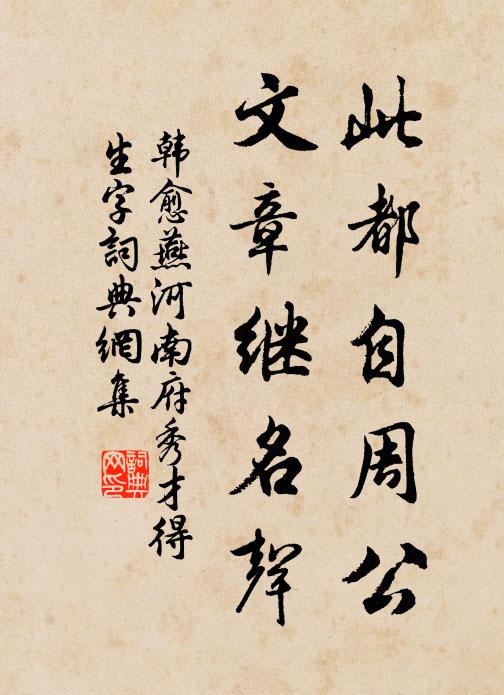 此都自周公
文章继名聲
韩愈燕河南府秀才得
生字詞典網集
詞典
网印